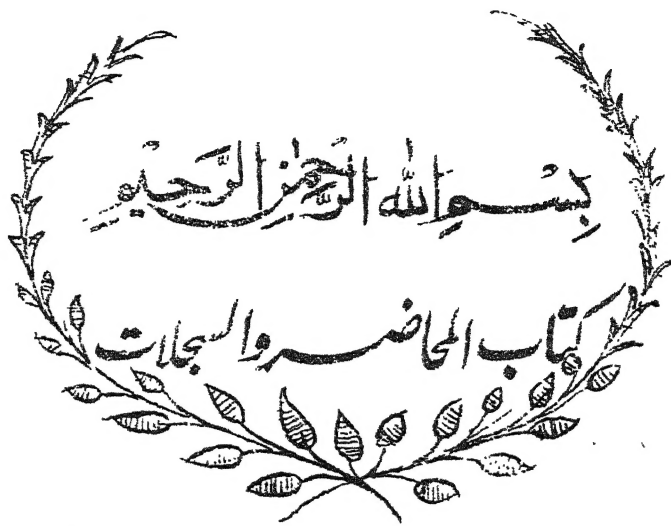 بِسْمِ اللهِ الرَّحْمٰنِ الرَّحِيْمِ
كتاب المحاضر والسجلات